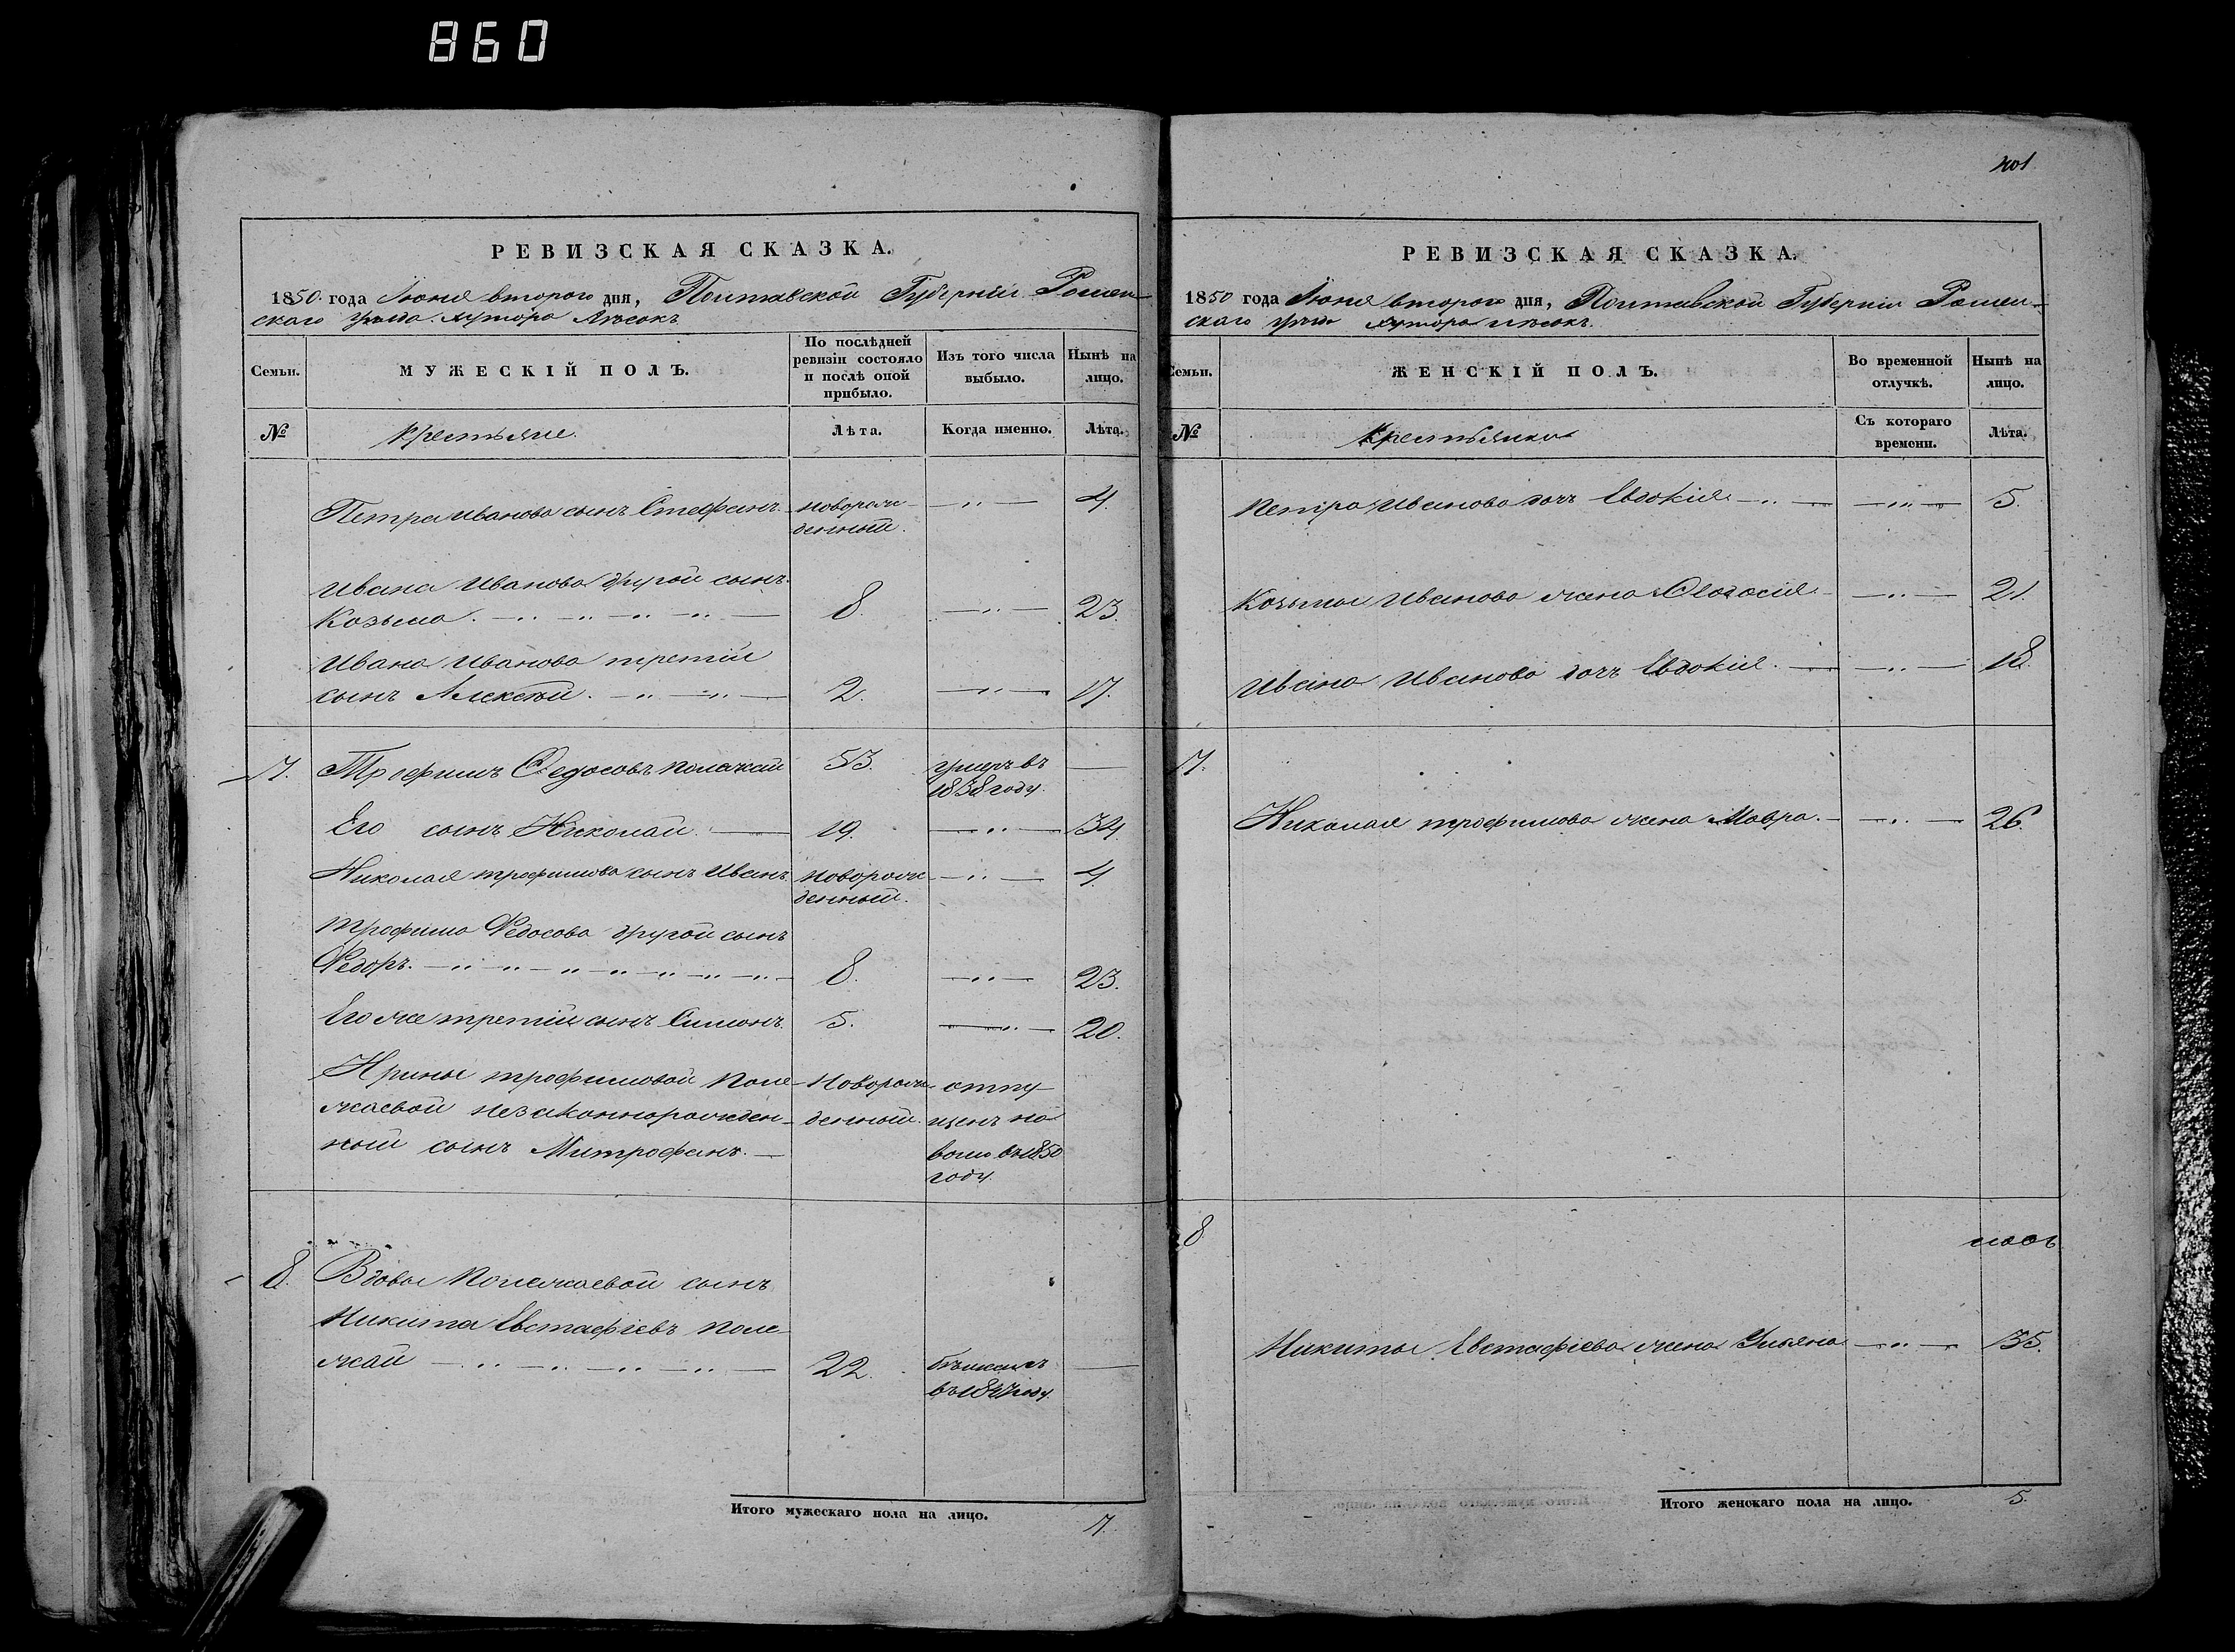 860
РЕВИЗСКАЯ СКАЗКА.
1850 года Іюня второго дня, Полтавской Губерніи Ромен-
скаго уѣзда хутора Лѣсокъ
Семьи.
МУЖЕСКІЙ ПОЛЪ.
По послѣдней
ревизіи состояло
и послѣ оной
прибыло.
Изъ того числа
выбыло.
Нынѣ на
лицо.
№
крестьяне.
Лѣта.
Когда именно.
Лѣта.
Петра Иванова сынъ Стефанъ новорож- 4.
денный.
Ивана Иванова другой сынъ
Козьма. 8. 23.
Ивана Иванова третій
сынъ Алексѣй. 2. 17.
7. Трофимъ Федосовъ Полежай 53. умеръ въ
1838 году.
Его сынъ Николай. 19. 34.
Николая трофимова сынъ Иванъ новорож 4.
денный.
Трофима Федосова другой сынъ
Федоръ. 8. 23.
Его же третій сынъ Симонъ. 5. 20.
Ирины трофимовой Поле- Новорож отпу
жаевой незаконнорожден- денный. щенъ на
ный сынъ Митрофанъ. волю въ 1850
году.
8. Вдовы Полежаевой сынъ
Никита Евстафіевъ Поле-
жай 22.
Итого мужескаго пола на лицо. 7.
401
РЕВИЗСКАЯ СКАЗКА.
1850 года Іюня второго дня, Полтавской Губерніи Ромен-
скаго уѣзда хутора Лѣсокъ.
Семьи.
ЖЕНСКІЙ ПОЛЪ.
Во временной
отлучкѣ.
Нынѣ на
лицо.
№
Съ котораго
времени.
Лѣта.
Петра Иванова дочь Евдокія 5.
Козьмы Иванова жена Феодосія 21.
Ивана Иванова дочь Евдокія 18.
7.
Николая трофимова жена Мавра. 26.
8
Никиты Евстафіева жена Ульяна 35.
Итого женскаго пола на лицо. 5.